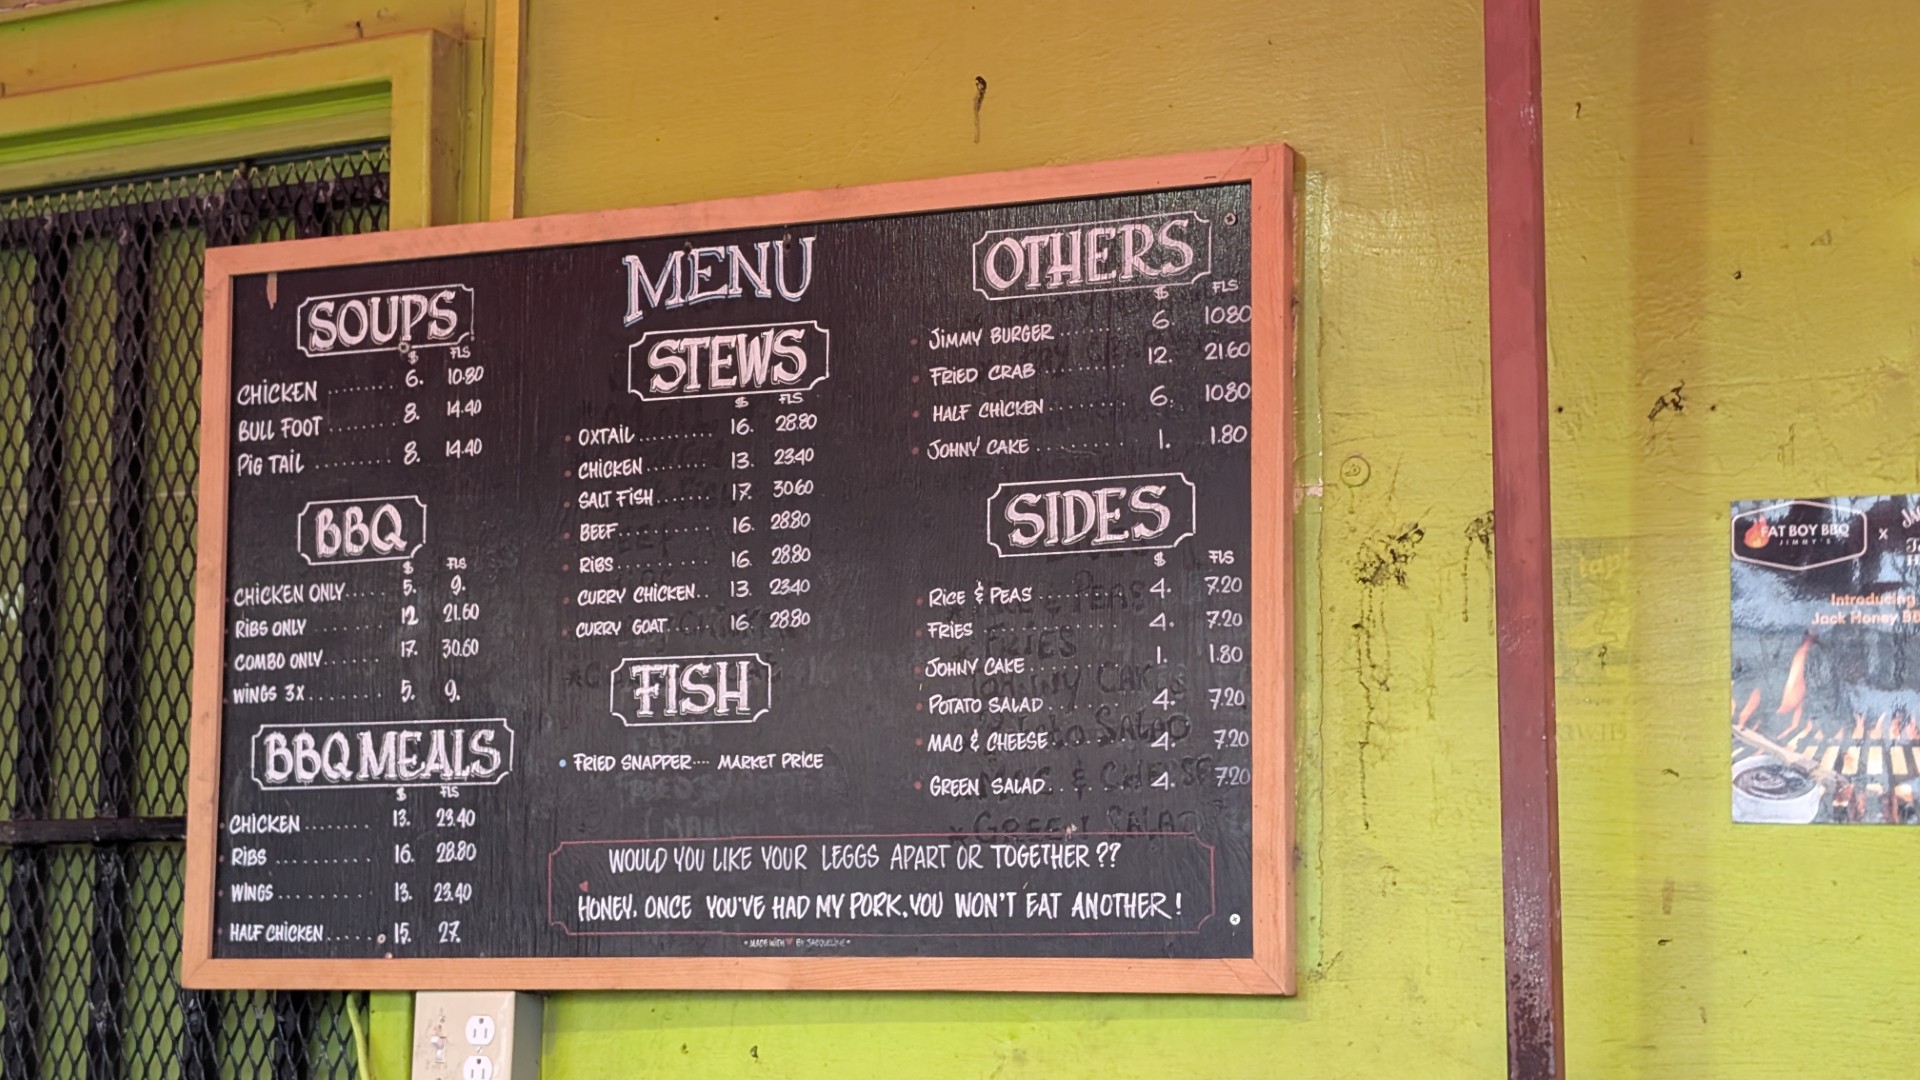 MENU
SOUPS
$ FLS
CHICKEN ........ 6. 10.80
BULL FOOT ........ 8. 14.40
PIG TAIL ......... 8. 14.40
BBQ
$ FLS
CHICKEN ONLY..... 5. 9.
RIBS ONLY ........ 12 21.60
COMBO ONLY...... 17. 30.60
WINGS 3X........ 5. 9.
BBQ MEALS
$ FLS
CHICKEN ....... 13. 23.40
RIBS .......... 16. 28.80
WINGS ......... 13. 23.40
HALF CHICKEN..... 15. 27.
STEWS
$ FLS
OXTAIL ......... 16. 28.80
CHICKEN ....... 13. 23.40
SALT FISH...... 17. 30.60
BEEF.......... 16. 28.80
RIBS .......... 16. 28.80
CURRY CHICKEN.. 13. 23.40
CURRY GOAT..... 16. 28.80
FISH
FRIED SNAPPER.... MARKET PRICE
OTHERS
$ FLS
JIMMY BURGER ....... 6. 10.80
FRIED CRAB ........ 12. 21.60
HALF CHICKEN ........ 6. 10.80
JOHNY CAKE ......... 1. 1.80
SIDES
$ FLS
RICE & PEAS ......... 4. 7.20
FRIES ............. 4. 7.20
JOHNY CAKE ......... 1. 1.80
POTATO SALAD ....... 4. 7.20
MAC & CHEESE ....... 4. 7.20
GREEN SALAD ....... 4. 7.20
WOULD YOU LIKE YOUR LEGGS APART OR TOGETHER ??
HONEY, ONCE YOU'VE HAD MY PORK, YOU WON'T EAT ANOTHER !
• MADE WITH ♥ BY JACQUELINE •
FAT BOY BBQ X
JIMMY'S
Introducing
Jack Honey BB